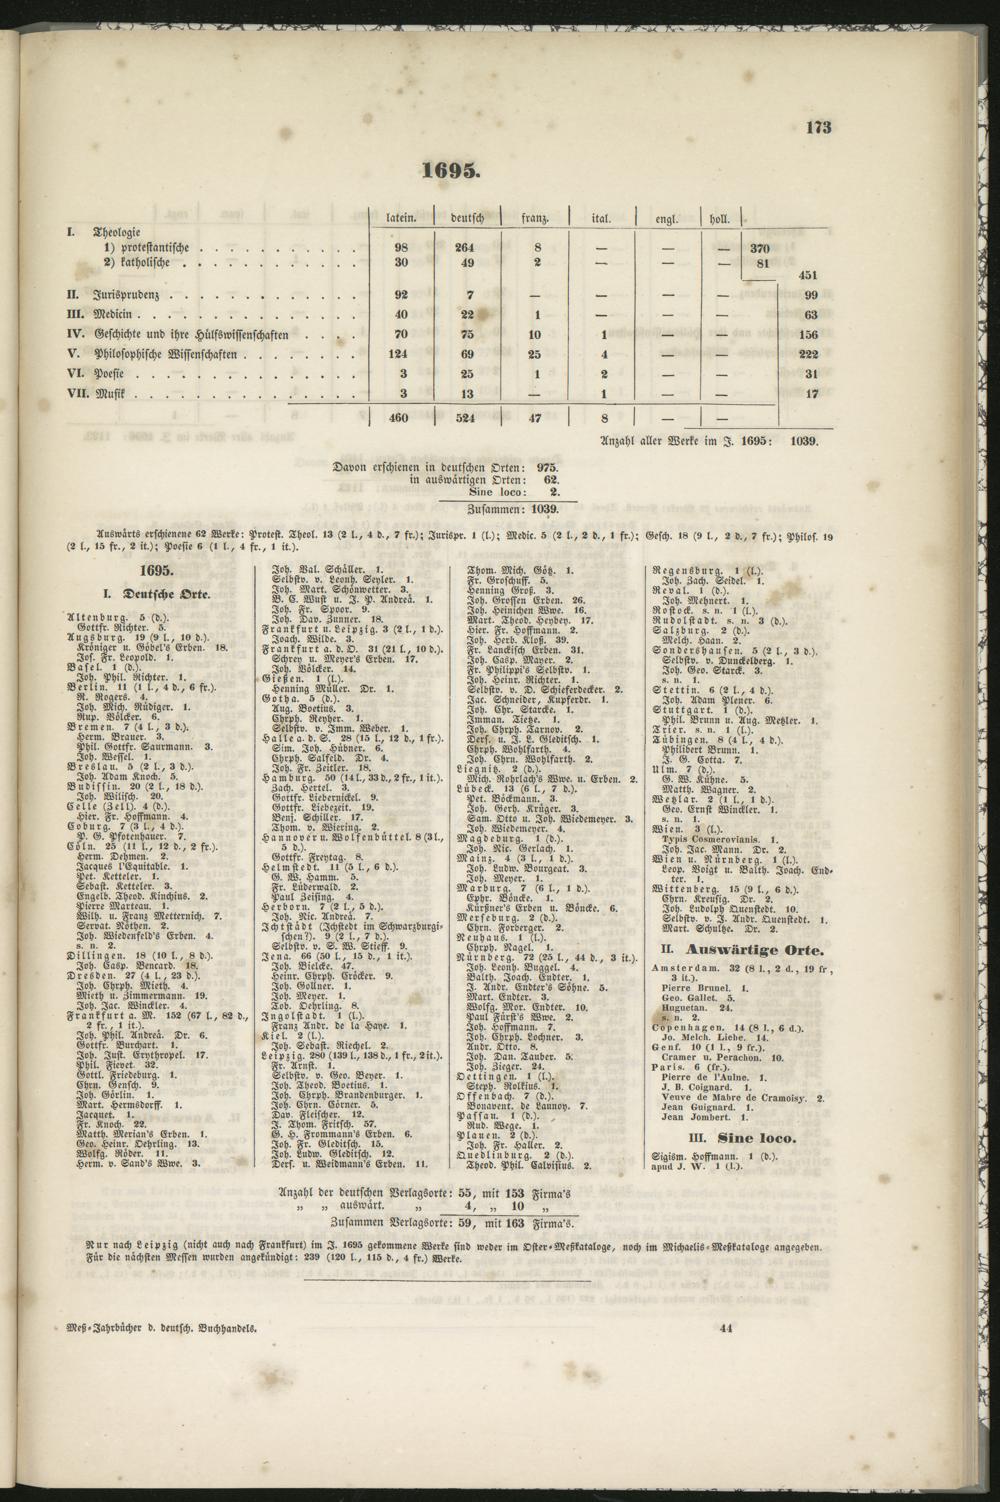 173
1695.
latein. deutsch franz. ital. engl. holl.
I. Theologie
1) protestantische . . . . . . . . . . . 98 264 8 — — — 370
2) katholische . . . . . . . . . . . . 30 49 2 — — — 81
451
II. Jurisprudenz . . . . . . . . . . . . . 92 7 — — — — 99
III. Medicin . . . . . . . . . . . . . . . 40 22 1 — — — 63
IV. Geschichte und ihre Hülfswissenschaften . . . . 70 75 10 1 — — 156
V. Philosophische Wissenschaften . . . . . . . . 124 69 25 4 — — 222
VI. Poesie . . . . . . . . . . . . . . . 3 25 1 2 — — 31
VII. Musik . . . . . . . . . . . . . . . 3 13 — 1 17
460 524 47 8 — —
Anzahl aller Werke im J. 1695: 1039.
Davon erschienen in deutschen Orten: 975.
in auswärtigen Orten: 62.
Sine loco: 2.
Zusammen: 1039.
Auswärts erschienene 62 Werke: Protest. Theol. 13 (2 l., 4 d., 7 fr.); Jurispr. 1 (l.); Medic. 5 (2 l., 2 d., 1 fr.); Gesch. 18 (9 l., 2 d., 7 fr.); Philos. 19
(2 l., 15 fr., 2 it.); Poesie 6 (1 l., 4 fr., 1 it.).
1695.
I. Deutsche Orte.
Altenburg. 5 (d.).
Gottfr. Richter. 5.
Augsburg. 19 (9 l., 10 d.).
Kröniger u. Göbel's Erben. 18.
Jos. Fr. Leopold. 1.
Basel. 1 (d.).
Joh. Phil. Richter. 1.
Berlin. 11 (1 l., 4 d., 6 fr.).
R. Rogers. 4.
Joh. Mich. Rüdiger. 1.
Rup. Völcker. 6.
Bremen. 7 (4 l., 3 d.).
Herm. Brauer. 3.
Phil. Gottfr. Saurmann. 3.
Joh. Wessel. 1.
Breslau. 5 (2 l., 3 d.).
Joh. Adam Knoch. 5.
Budissin. 20 (2 l., 18 d.).
Joh. Wilisch. 20.
Celle (Zell). 4 (d.).
Hier. Fr. Hoffmann. 4.
Coburg. 7 (3 l., 4 d.).
P. G. Pfotenhauer. 7.
Cöln. 25 (11 l., 12 d., 2 fr.).
Herm. Dehmen. 2.
Jacques l'Equitable. 1.
Pet. Ketteler. 1.
Sebast. Ketteler. 3.
Engelb. Theod. Kinchius. 2.
Pierre Marteau. 1.
Wilh. u. Franz Metternich. 7.
Servat. Nöthen. 2.
Joh. Wiedenfeld's Erben. 4.
s. n. 2.
Dillingen. 18 (10 l., 8 d.).
Joh. Casp. Bencard. 18.
Dresden. 27 (4 l., 23 d.).
Joh. Chrph. Mieth. 4.
Mieth u. Zimmermann. 19.
Joh. Jac. Winckler. 4.
Frankfurt a. M. 152 (67 l., 82 d.,
2 fr., 1 it.).
Joh. Phil. Andreä. Dr. 6.
Gottfr. Burchart. 1.
Joh. Just. Erythropel. 17.
Phil. Fievet. 32.
Gottl. Friedeburg. 1.
Chrn. Gensch. 9.
Joh. Görlin. 1.
Mart. Hermsdorff. 1.
Jacquet. 1.
Fr. Knoch. 22.
Matth. Merian's Erben. 1.
Geo. Heinr. Oehrling. 13.
Wolfg. Röder. 11.
Herm. v. Sand's Wwe. 3.
Joh. Val. Schäller. 1.
Selbstv. v. Leonh. Seyler. 1.
Joh. Mart. Schönwetter. 3.
B. C. Wust u. J. P. Andreä. 1.
Joh. Fr. Spoor. 9.
Joh. Dav. Zunner. 18.
Frankfurt u. Leipzig. 3 (2 l., 1 d.).
Joach. Wilde. 3.
Frankfurt a. d. O. 31 (21 l., 10 d.).
Schrey u. Meyer's Erben. 17.
Joh. Völcker. 14.
Gießen. 1 (l.).
Henning Müller. Dr. 1.
Gotha. 5 (d.).
Aug. Boetius. 3.
Chrph. Reyher. 1.
Selbstv. v. Imm. Weber. 1.
Halle a. d. S. 28 (15 l., 12 d., 1 fr.).
Sim. Joh. Hübner. 6.
Chrph. Salfeld. Dr. 4.
Joh. Fr. Zeitler. 18.
Hamburg. 50 (14 l., 33 d., 2 fr., 1 it.).
Zach. Hertel. 3.
Gottfr. Liebernickel. 9.
Gottfr. Liebezeit. 19.
Benj. Schiller. 17.
Thom. v. Wiering. 2.
Hannover u. Wolfenbüttel. 8 (3 l.,
5 d.).
Gottfr. Freytag. 8.
Helmstedt. 11 (5 l., 6 d.).
G. W. Hamm. 5.
Fr. Lüderwald. 2.
Paul Zeising. 4.
Herborn. 7 (2 l., 5 d.).
Joh. Nic. Andreä. 7.
Ichtstädt (Ichstedt im Schwarzburgi-
schen?). 9 (2 l., 7 d.).
Selbstv. v. S. W. Stieff. 9.
Jena. 66 (50 l., 15 d., 1 it.).
Joh. Bielcke. 47.
Heinr. Chrph. Cröcker. 9.
Joh. Gollner. 1.
Joh. Meyer. 1.
Tob. Oehrling. 8.
Ingolstadt. 1 (l.).
Franz Andr. de la Haye. 1.
Kiel. 2 (l.).
Joh. Sebast. Riechel. 2.
Leipzig. 280 (139 l., 138 d., 1 fr., 2 it.).
Fr. Arnst. 1.
Selbstv. v. Geo. Beyer. 1.
Joh. Theod. Boetius. 1.
Joh. Chrph. Brandenburger. 1.
Joh. Chrn. Cörner. 5.
Dav. Fleischer. 12.
J. Thom. Fritsch. 57.
G. H. Frommann's Erben. 6.
Joh. Fr. Gleditsch. 15.
Joh. Ludw. Gleditsch. 12.
Ders. u. Weidmann's Erben. 11.
Thom. Mich. Götz. 1.
Fr. Groschuff. 5.
Henning Groß. 3.
Joh. Grossen Erben. 26.
Joh. Heinichen Wwe. 16.
Mart. Theod. Heybey. 17.
Hier. Fr. Hoffmann. 2.
Joh. Herb. Kloß. 39.
Fr. Lanckisch Erben. 31.
Joh. Casp. Mayer. 2.
Fr. Philippi's Selbstv. 1.
Joh. Heinr. Richter. 1.
Selbstv. v. D. Schieferdecker. 2.
Jac. Schneider, Kupferdr. 1.
Joh. Chr. Starcke. 1.
Imman. Tietze. 1.
Joh. Chrph. Tarnov. 2.
Ders. u. J. L. Gleditsch. 1.
Chrph. Wohlfarth. 4.
Joh. Chrn. Wohlfarth. 2.
Liegnitz. 2 (d.).
Mich. Rohrlach's Wwe. u. Erben. 2.
Lübeck. 13 (6 l., 7 d.).
Pet. Böckmann. 3.
Joh. Gerh. Krüger. 3.
Sam. Otto u. Joh. Wiedemeyer. 3.
Joh. Wiedemeyer. 4.
Magdeburg. 1 (d.).
Joh. Nic. Gerlach. 1.
Mainz. 4 (3 l., 1 d.).
Joh. Ludw. Bourgeat. 3.
Joh. Meyer. 1.
Marburg. 7 (6 l., 1 d.).
Ephr. Böncke. 1.
Kürßner's Erben u. Böncke. 6.
Merseburg. 2 (d.).
Chrn. Forberger. 2.
Neuhaus. 1 (l.).
Chrph. Nagel. 1.
Nürnberg. 72 (25 l., 44 d., 3 it.).
Joh. Leonh. Buggel. 4.
Balth. Joach. Endter. 1.
J. Andr. Endter's Söhne. 5.
Mart. Endter. 3.
Wolfg. Mor. Endter. 10.
Paul Fürst's Wwe. 2.
Joh. Hoffmann. 7.
Joh. Chrph. Lochner. 3.
Andr. Otto. 8.
Joh. Dan. Tauber. 5.
Joh. Zieger. 24.
Oettingen. 1 (l.).
Steph. Rolkius. 1.
Offenbach. 7 (d.).
Bonavent. de Launoy. 7.
Passau. 1 (d.).
Rud. Wege. 1.
Plauen. 2 (d.).
Joh. Fr. Haller. 2.
Quedlinburg. 2 (d.).
Theod. Phil. Calvisius. 2.
Regensburg. 1 (l.).
Joh. Zach. Seidel. 1.
Reval. 1 (d.).
Joh. Mehnert. 1.
Rostock. s. n. 1 (l.).
Rudolstadt. s. n. 3 (d.).
Salzburg. 2 (d.).
Melch. Haan. 2.
Sondershausen. 5 (2 l., 3 d.).
Selbstv. v. Dunckelberg. 1.
Joh. Geo. Starck. 3.
s. n. 1.
Stettin. 6 (2 l., 4 d.).
Joh. Adam Plener. 6.
Stuttgart. 1 (d.).
Phil. Brunn u. Aug. Metzler. 1.
Trier. s. n. 1 (l.).
Tübingen. 8 (4 l., 4 d.).
Philibert Brunn. 1.
J. G. Cotta. 7.
Ulm. 7 (d.).
G. W. Kühne. 5.
Matth. Wagner. 2.
Wetzlar. 2 (1 l., 1 d.).
Geo. Ernst Winckler. 1.
s. n. 1.
Wien. 3 (l.).
Typis Cosmerovianis. 1.
Joh. Jac. Mann. Dr. 2.
Wien u. Nürnberg. 1 (l.).
Leop. Voigt u. Balth. Joach. End-
ter. 1.
Wittenberg. 15 (9 l., 6 d.).
Chrn. Kreusig. Dr. 2.
Joh. Ludolph Quenstedt. 10.
Selbstv. v. J. Andr. Quenstedt. 1.
Mart. Schultze. Dr. 2.
II. Auswärtige Orte.
Amsterdam. 32 (8 l., 2 d., 19 fr.,
3 it.).
Pierre Brunel. 1.
Geo. Gallet. 5.
Huguetan. 24.
s. n. 2.
Copenhagen. 14 (8 l., 6 d.).
Jo. Melch. Liebe. 14.
Genf. 10 (1 l., 9 fr.).
Cramer u. Perachon. 10.
Paris. 6 (fr.).
Pierre de l'Aulne. 1.
J. B. Coignard. 1.
Veuve de Mabre de Cramoisy. 2.
Jean Guignard. 1.
Jean Jombert. 1.
III. Sine loco.
Sigism. Hoffmann. 1 (d.).
apud J. W. 1 (l.).
Anzahl der deutschen Verlagsorte: 55, mit 153 Firma's
„ „ auswärt. „ 4, „ 10 „
Zusammen Verlagsorte: 59, mit 163 Firma's.
Nur nach Leipzig (nicht auch nach Frankfurt) im J. 1695 gekommene Werke sind weder im Oster-Meßkataloge, noch im Michaelis-Meßkataloge angegeben.
Für die nächsten Messen wurden angekündigt: 239 (120 l., 115 d., 4 fr.) Werke.
Meß-Jahrbücher d. deutsch. Buchhandels.
44